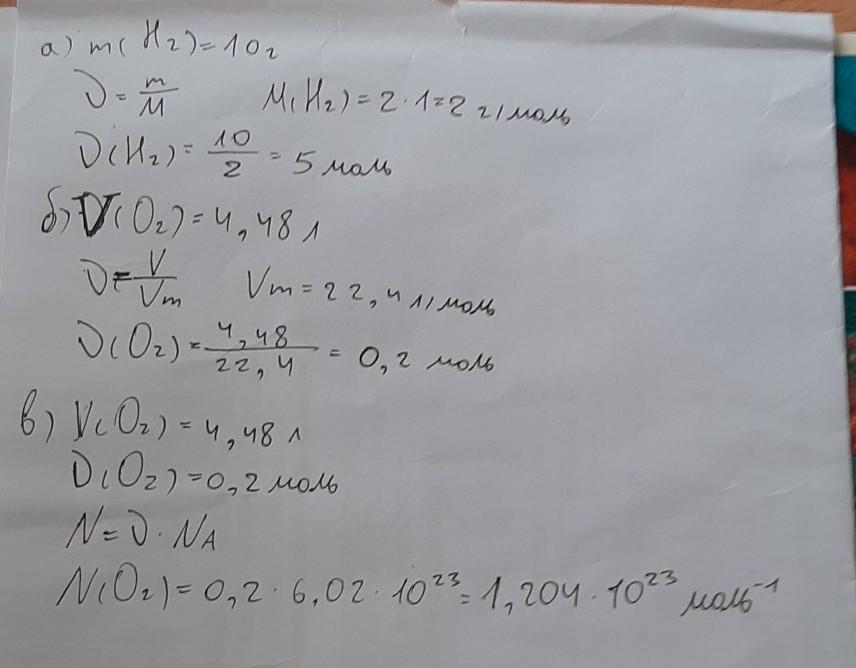 а) m(H₂) = 10г
ν = m/M M(H₂) = 2·1=2 г/моль
ν(H₂) = 10/2 = 5 моль
б) V(O₂) = 4,48 л
ν = V/Vm Vm = 22,4 л/моль
ν(O₂) = 4,48/22,4 = 0,2 моль
в) V(O₂) = 4,48 л
ν(O₂) = 0,2 моль
N = ν · NA
N(O₂) = 0,2 · 6,02 · 10²³ = 1,204 · 10²³ моль⁻¹